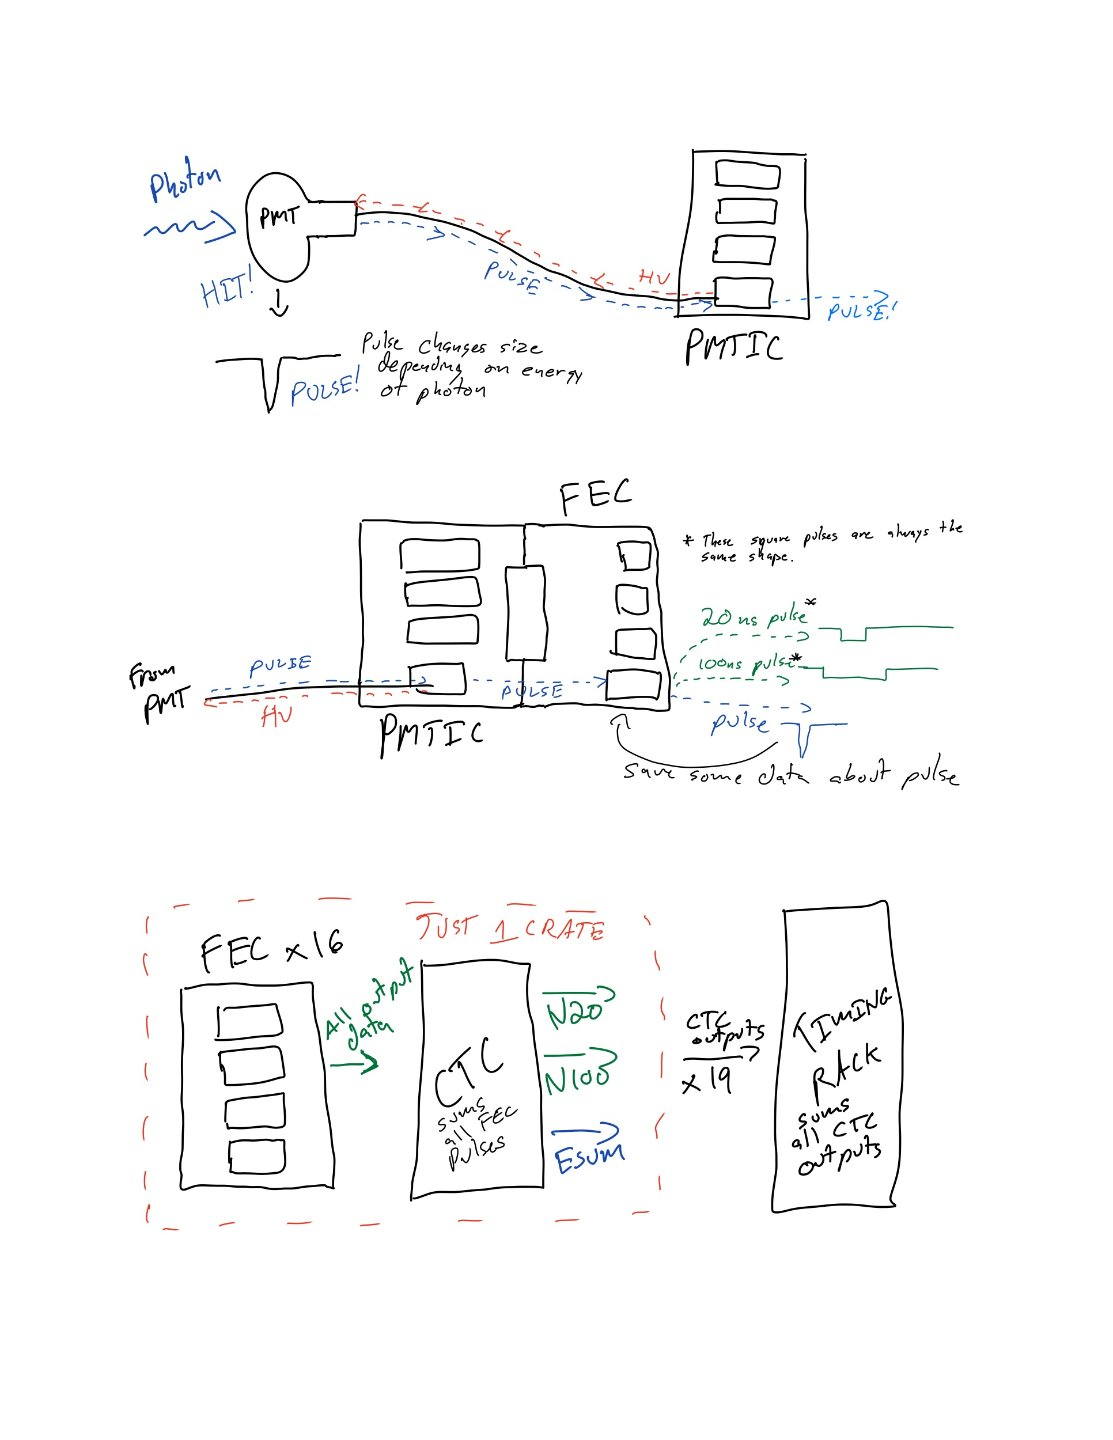 Photon
PMT
HIT!
PULSE
HV
PULSE!
PMTIC
PULSE!
Pulse changes size
depending on energy
of photon
FEC
* These square pulses are always the
same shape.
20ns pulse*
100ns pulse*
From
PMT
PULSE
HV
PULSE
pulse
PMTIC
Save some data about pulse
JUST 1 CRATE
FEC x16
All output
data
CTC
sums
all FEC
Pulses
N20
N100
Esum
CTC
outputs
x 19
TIMING
RACK
sums
all CTC
outputs